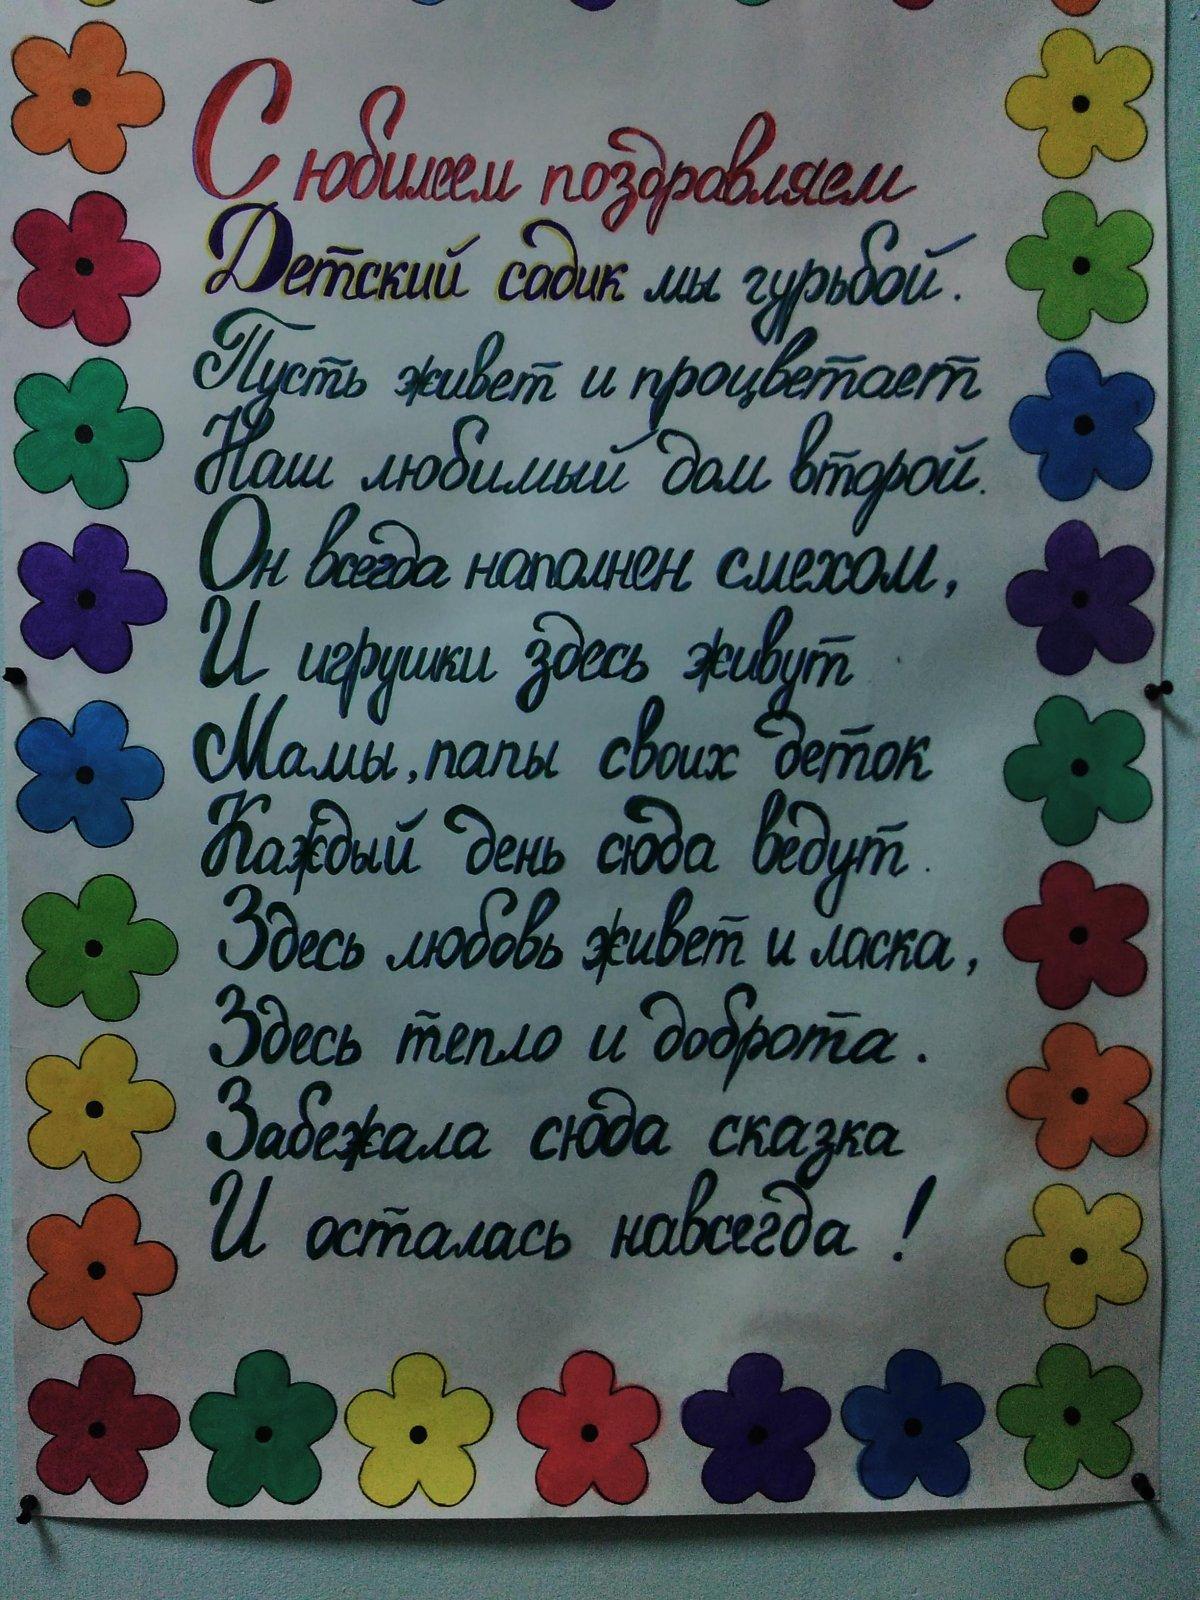 С юбилеем поздравляем
Детский садик мы гурьбой.
Пусть живет и процветает
Наш любимый дом второй.
Он всегда наполнен смехом,
И игрушки здесь живут
Мамы, папы своих деток
Каждый день сюда ведут.
Здесь любовь живет и ласка,
Здесь тепло и доброта.
Забежала сюда сказка
И осталась навсегда!